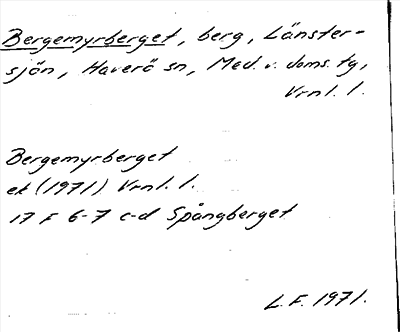 Bergemyrberget, berg, Länster-
sjön, Haverö sn, Med. v. doms. tg,
Vrnl. l.
Bergemyrberget
ek (1971) Vrnl. l.
17 F 6-7 c-d Spångberget
L. F. 1971.